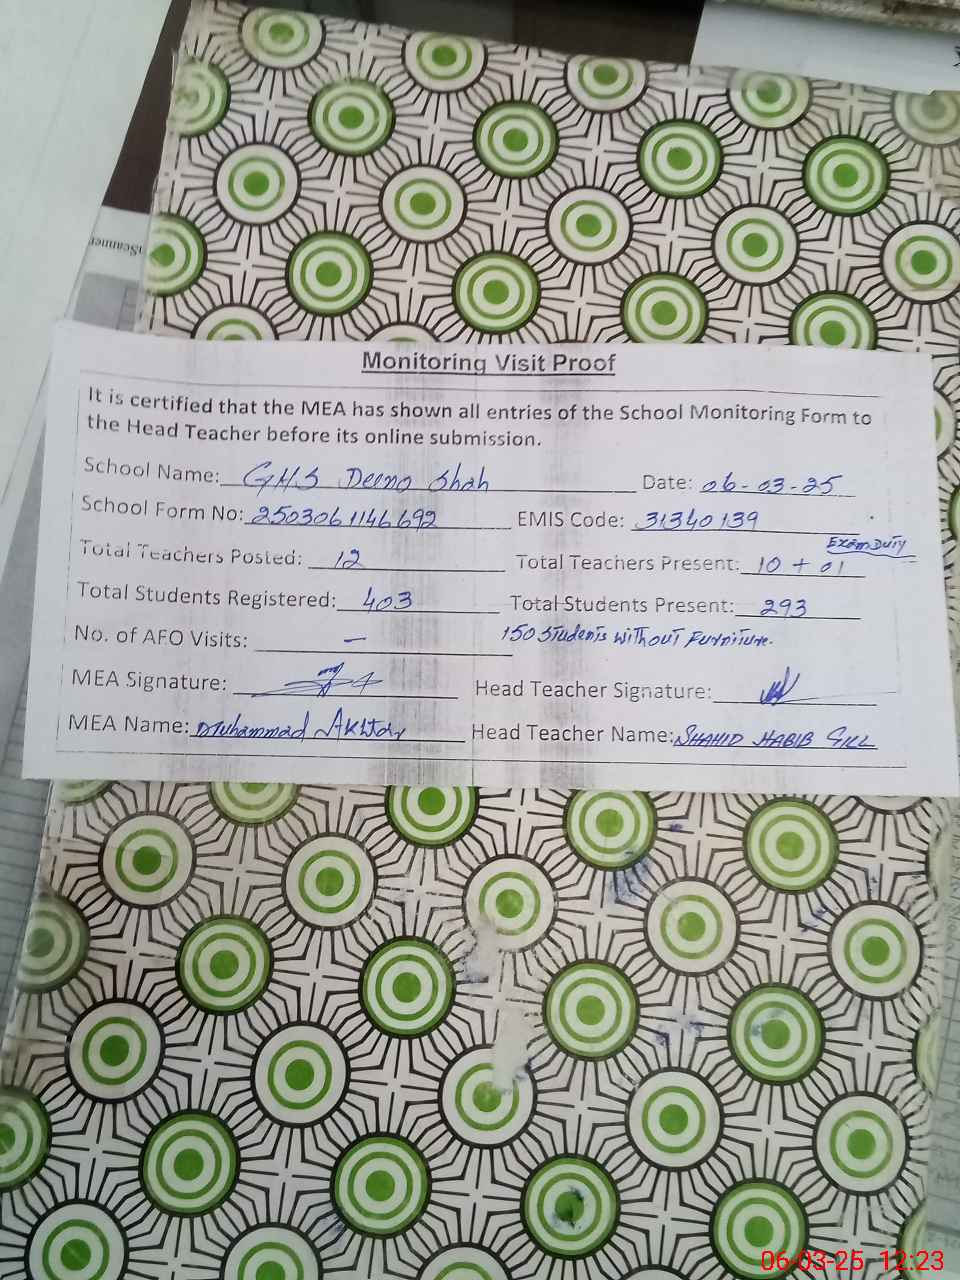 Monitoring Visit Proof
It is certified that the MEA has shown all entries of the School Monitoring Form to
the Head Teacher before its online submission.
School Name: GHS Deeno Shah Date: 06-03-25
School Form No: 2503061146692 EMIS Code: 31340139
Exam Duty
Total Teachers Posted: 12 Total Teachers Present: 10 + 01
Total Students Registered: 403 Total Students Present: 293
No. of AFO Visits: — 150 Students without Furniture.
MEA Signature: Head Teacher Signature:
MEA Name: Muhammad Akhtar Head Teacher Name: SHAHID HABIB GILL
06-03-25 12:23